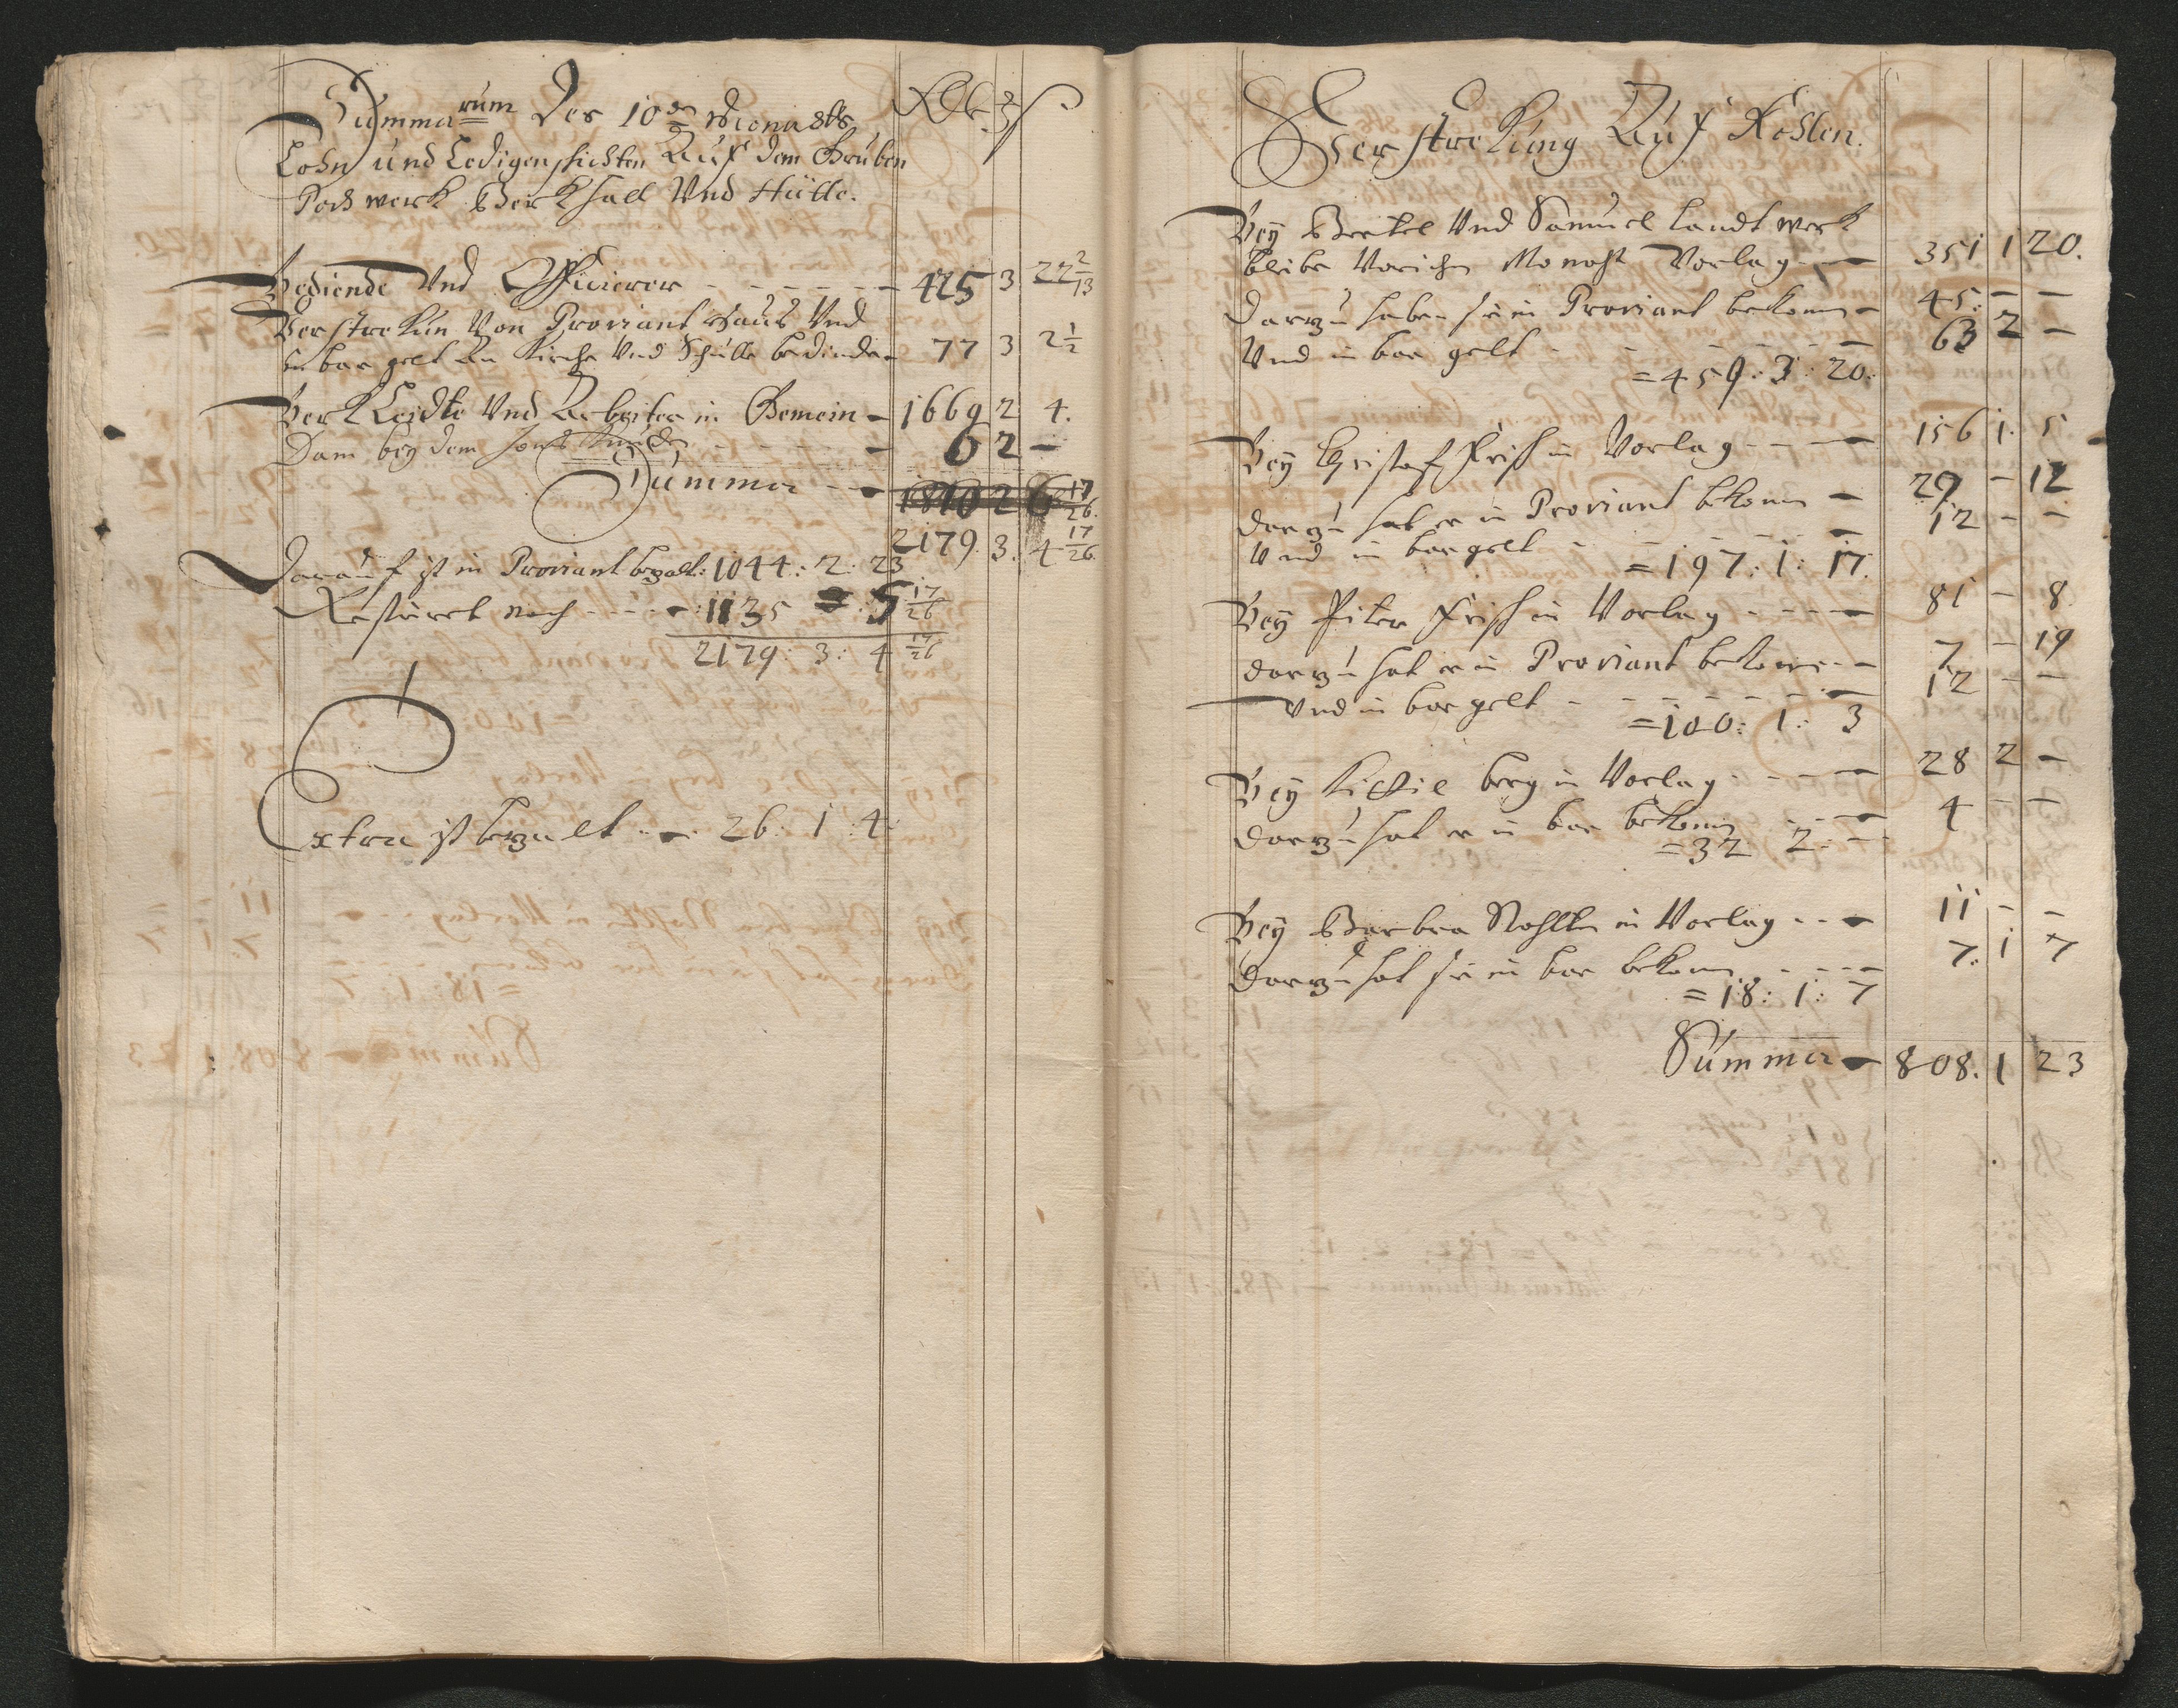 Summarum Des 10den Monahts
Lohn und Ledigenschichten Auf dem Gruben
Pochwerk Berckhall Vnd Hütte.
Bediende Vnd Officierer - - - - - - 425 3 22 2/13
Verstrekun Von Proviant Haus Vnd
bar gelt An Kirche Vnd Schulle bedinde - 77 3 2 1/2
BerkLeidte Vnd Arbeiter in Gemein - 1669 2 4.
Dam bey dem - - - - - 6 2 -
Summa - - 1810 2 6 17/26.
2179. 3. 4 17/26.
Darauf ist in Proviant bezalt: 1044: 2: 23
Restieret noch - - - - : 1135 - : 5 17/26
2179: 3: 4 17/26
Extra ist bezalt - - 26: 1: 4:
Verstrekung Auf Kohlen.
Bey Bertel Vnd Samuel Landtwerk
blibe Vorichen Monaht Vorlag - - 351 1 20.
Darzu haben sie in Proviant bekomen - 45: - -
Vnd in bar gelt - - - - - - 63 2 -
= 459: 3: 20:
Bey Christof Frish in Vorlag - - - 156 1. 5
darzu hat er in Proviant bekomen - 29 - 12
Vnd in bar gelt - - - - - - 12 - -
= 197: 1: 17.
Bey Piter Frish in Vorlag - - - - 81 - 8
darzu hat er in Proviant bekomen - - 7 - 19
Vnd in bar gelt - - - - - - 12 - -
= 100: 1: 3
Bey berg in Vorlag - - - - 28 2 -
darzu hat er in bar bekomen - - - 4 - -
= 32 2: -
Bey Barbra in Vorlag - - - 11 - -
Darzu hat sie in bar bekomen - - - - 7: 1 7
= 18: 1: 7
Summa - 808. 1 23